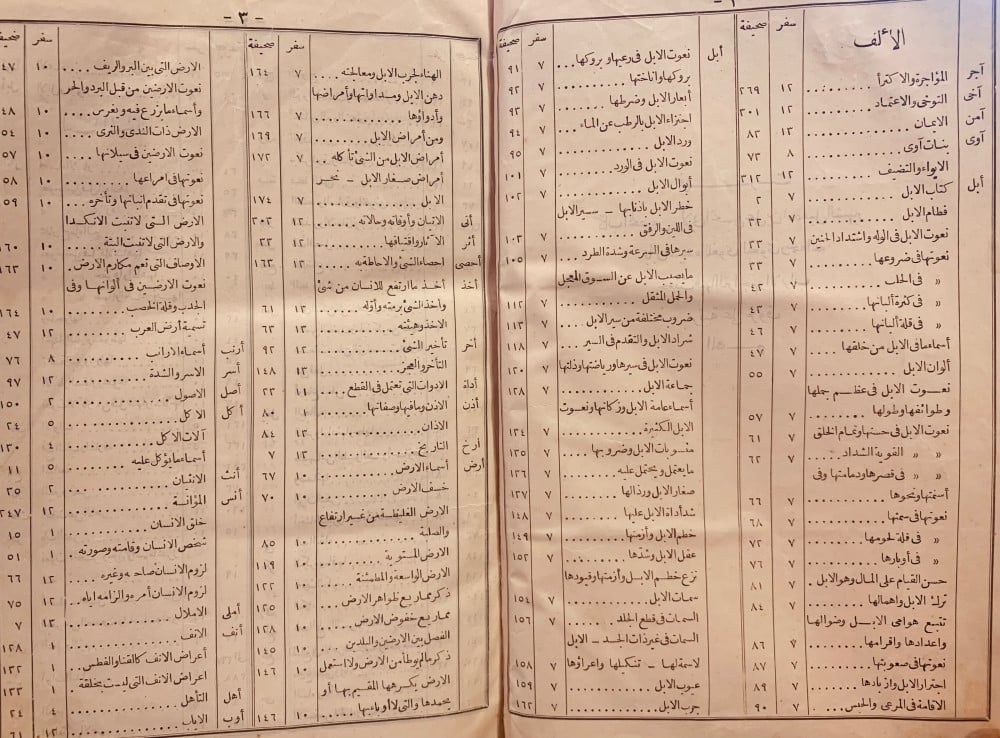 الألف
سفر صحيفة
آجر المؤاجرة والاكتراء ١٢ ٢٦٩
آخى التوخى والاعتماد ١٢ ٣٠١
آمن الايمان ١٣ ٨٢
آوى بنات آوى ٨ ٧٣
الايواء والتضيف ١٢ ٣١٢
أبل كتاب الابل ٧ ٢
فطام الابل ٧ ٣٢
نعوت الابل فى الوله واشتداد الحنين ٧ ٣٣
نعوتها فى ضروعها ٧
« فى الحلب ٧ ٤٢
« فى كثرة ألبانها ٧ ٤٣
« فى قلة ألبانها ٧ ٤٦
أسماء ما فى الابل من خلقها ٧ ٤٧
ألوان الابل ٧ ٥٥
نعوت الابل فى عظم جملها
وطوائفها وطولها ٧ ٥٧
نعوت الابل فى حسنها وتمام الخلق ٧ ٦١
« « القوية الشداد ٧ ٦٢
« « فى قصرها ودمامتها وفى
أسنمتها ونحوها ٧ ٦٦
نعوتها فى سمنها ٧ ٦٨
« فى قلة لحومها ٧ ٧٢
« فى أوبارها ٧ ٧٦
حسن القيام على المال وهو الابل ٧ ٨١
ترك الابل واهمالها ٧ ٨٤
تتبع هوامى الابل وضوالها
واعدادها واقرامها ٧ ٨٦
نعوتها فى صعوبتها ٧ ٨٧
اجترار الابل وازبادها ٧ ٨٩
الاقامة فى المرعى والحبس ٧ ٩٠
سفر صحيفة
أبل نعوت الابل فى رعيها وبروكها ٧ ٩١
بروكها واناختها ٧ ٩٢
أبعار الابل وضرطها ٧ ٩٣
اجتزاء الابل بالرطب عن الماء ٧ ٩٤
ورد الابل ٧ ٩٥
نعوت الابل فى الورد ٧ ١٠١
أبوال الابل ٧ ١٠٢
خطر الابل باذنابها - سير الابل
فى اللين والرفق ٧ ١٠٣
سيرها فى السرعة وشدة الطرد ٧ ١٠٥
ما يصيب الابل عن السوق المعجل
والحمل المثقل ٧ ١١٢
ضروب مختلفة من سير الابل ٧ ١١٣
شراد الابل والتقدم فى السير ٧ ١١٨
نعوت الابل فى سيرها ورياضتها وذلتها ٧ ١٢٠
جماعة الابل ٧ ١٢٨
أسماء عامة الابل وزكاتها ونعوت
الابل الكثيرة ٧ ١٣٤
منسوبات الابل وضروبها ٧ ١٣٥
ما يعتمل ويحتمل عليه ٧ ١٣٦
صغار الابل ورذالها ٧ ١٣٧
شد أداة الابل عليها ٧ ١٤٨
خطم الابل وأزمتها ٧ ١٤٩
عقل الابل وشدها ٧ ١٥٢
نزع خطم الابل وأزمتها وقيودها
سمات الابل ٧ ١٥٤
السمات فى قطع الجلد ٧ ١٥٦
السمات فى غير ذات الجسد - الابل
لا سمة لها - تنكيلها واعراؤها ٧ ١٥٨
عيوب الابل ٧ ١٥٩
جرب الابل ٧ ١٦٢
- ٣ -
سفر صحيفة
الهناء لجرب الابل ومعالجته ٧ ١٦٤
دهن الابل ومداواتها وأمراضها
وأدواؤها ٧ ١٦٦
ومن أمراض الابل ٧ ١٦٩
أمراض الابل من الشئ تأكله ٧ ١٧٢
أمراض صغار الابل - نحر
الابل ٧ ١٧٤
أتى الاتيان وأوقاته وحالاته ١٢ ٣٠٣
أثر الآثار واقتيافها ١٢ ٢٣
أحصى احصاء الشئ والاحاطة به ١٢ ١٦٣
أخذ أخذ ما ارتفع للانسان من شئ
وأخذ الشئ برمته وأوله ١٣ ٦١
الاخذ وهيئته ١٣ ٦٣
أخر تأخير الشئ ١٢ ٩٢
التأخر والعجز ١٣ ١٤٨
أداة الادوات التى تعتمل فى القطع ١١ ٢٣
أذن الاذن وما فيها وصفاتها ١ ٨٠
الاذان ١٣ ٨٤
أرخ التاريخ ١٣ ٧
أرض أسماء الارض ١٠ ٦٧
خسف الارض ١٠ ٧٠
الارض الغليظة من غير ارتفاع
والصلبة ١٠ ٨٥
الارض المستوية ١٠ ١١٩
الارض الواسعة والمطمئنة ١٠ ١٢٢
ذكر مماريع ظواهر الارض ١٠ ١٢٥
مماريع خفوض الارض ١٠ ١٢٨
الفصل بين الارضين والبلدين ١٠ ١٤٥
ذكر ما لم يوطأ من الارض ولا استعمل ١٠ ١٤٦
الارض يكرهها المقيم بها أو
يحمدها والتى لا أوباء بها ١٠ ١٤٦
سفر صحيفة
الارض التى بين البر والريف ١٠ ٤٧
نعوت الارضين من قبل البرد والحر
وأسماء ما يزرع فيه ويغرس ١٠ ٤٨
الارض ذات الندى والثرى ١٠ ٥٤
نعوت الارضين فى سيلانها ١٠ ٥٧
نعوتها فى امراعها ١٠ ٥٨
نعوتها فى تقدم انباتها وتأخره ١٠ ٥٩
الارض التى لا تنبت الا نكدا
والارض التى لا تنبت البتة ١٠ ١٦٠
الاوصاف التى تعم مكارم الارض ١٠ ١٦٣
نعوت الارضين فى ألوانها وفى
الجدب وقلة الخصب ١٠ ١٦٤
تسمية أرض العرب ١٢ ٤٧
أرنب أسماء الارانب ٨ ٧٦
أسر الاسر والشدة ١٢ ٩٧
أصل الاصول ٢ ١٥٠
أكل الاكل ٥ ٢٤
آلات الاكل ٤ ١٣٠
أسماء ما يؤكل عليه ٥ ١١
أنث الانثيان ٢ ٣٥
أنس المؤانسة ١٢ ٢٤٧
خلق الانسان ١ ١٥
شخص الانسان وقامته وصورته ١ ٥١
لزوم الانسان صاحبه وغيره ١٢ ٦٦
لزوم الانسان أمره والزامه اياه ١٢ ٧٥
أملى الاملال ١٣ ٧
أنف الانف ١ ١٢٨
أعراض الانف كالقنا والفطس ١ ١٣٢
أعراض الانف التى ليست بخلقة ١ ١٣٣
أهل التأهل ٤ ٢٤
أوب الاياب ١٢ ٦١